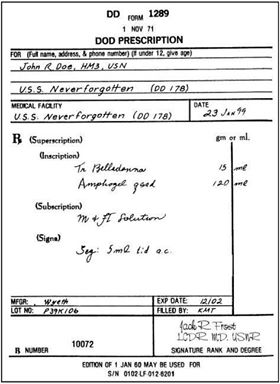 DD FORM 1289
1 NOV 71
DOD PRESCRIPTION
FOR (Full name, address, & phone number) (If under 12, give age)
John R. Doe, HM3, USN
U.S.S. Neverforgotten (DD 178)
MEDICAL FACILITY
U.S.S. Neverforgotten (DD 178)
DATE
23 Jan 99
℞ (Superscription) gm or ml.
(Inscription)
Tr Belladonna 15 ml
Amphogel qsad 120 ml
(Subscription)
M & ft Solution
(Signa)
Sig: 5ml tid a.c.
MFGR: Wyeth EXP DATE: 12/02
LOT NO: P39K106 FILLED BY: KMT
Jack R. Frost
LCDR MD. USNR
℞ NUMBER 10072 SIGNATURE RANK AND DEGREE
EDITION OF 1 JAN 60 MAY BE USED FOR
S/N 0102-LF-012-6201